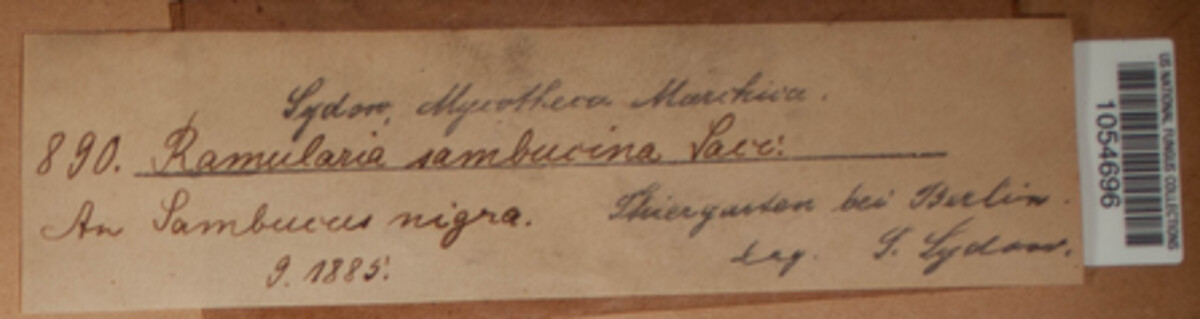 Sydow, Mycotheca Marchica.
890. Ramularia sambucina Sacc:
An Sambucus nigra. Thiergarten bei Berlin.
9. 1885. leg. P. Sydow.
US NATIONAL FUNGUS COLLECTIONS
1054696